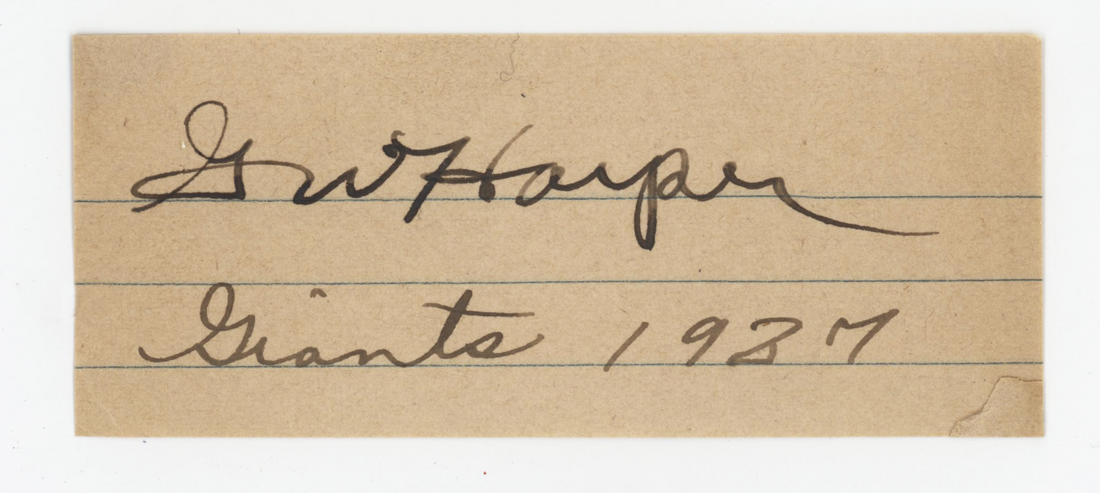 G W Harper
Giants 1927